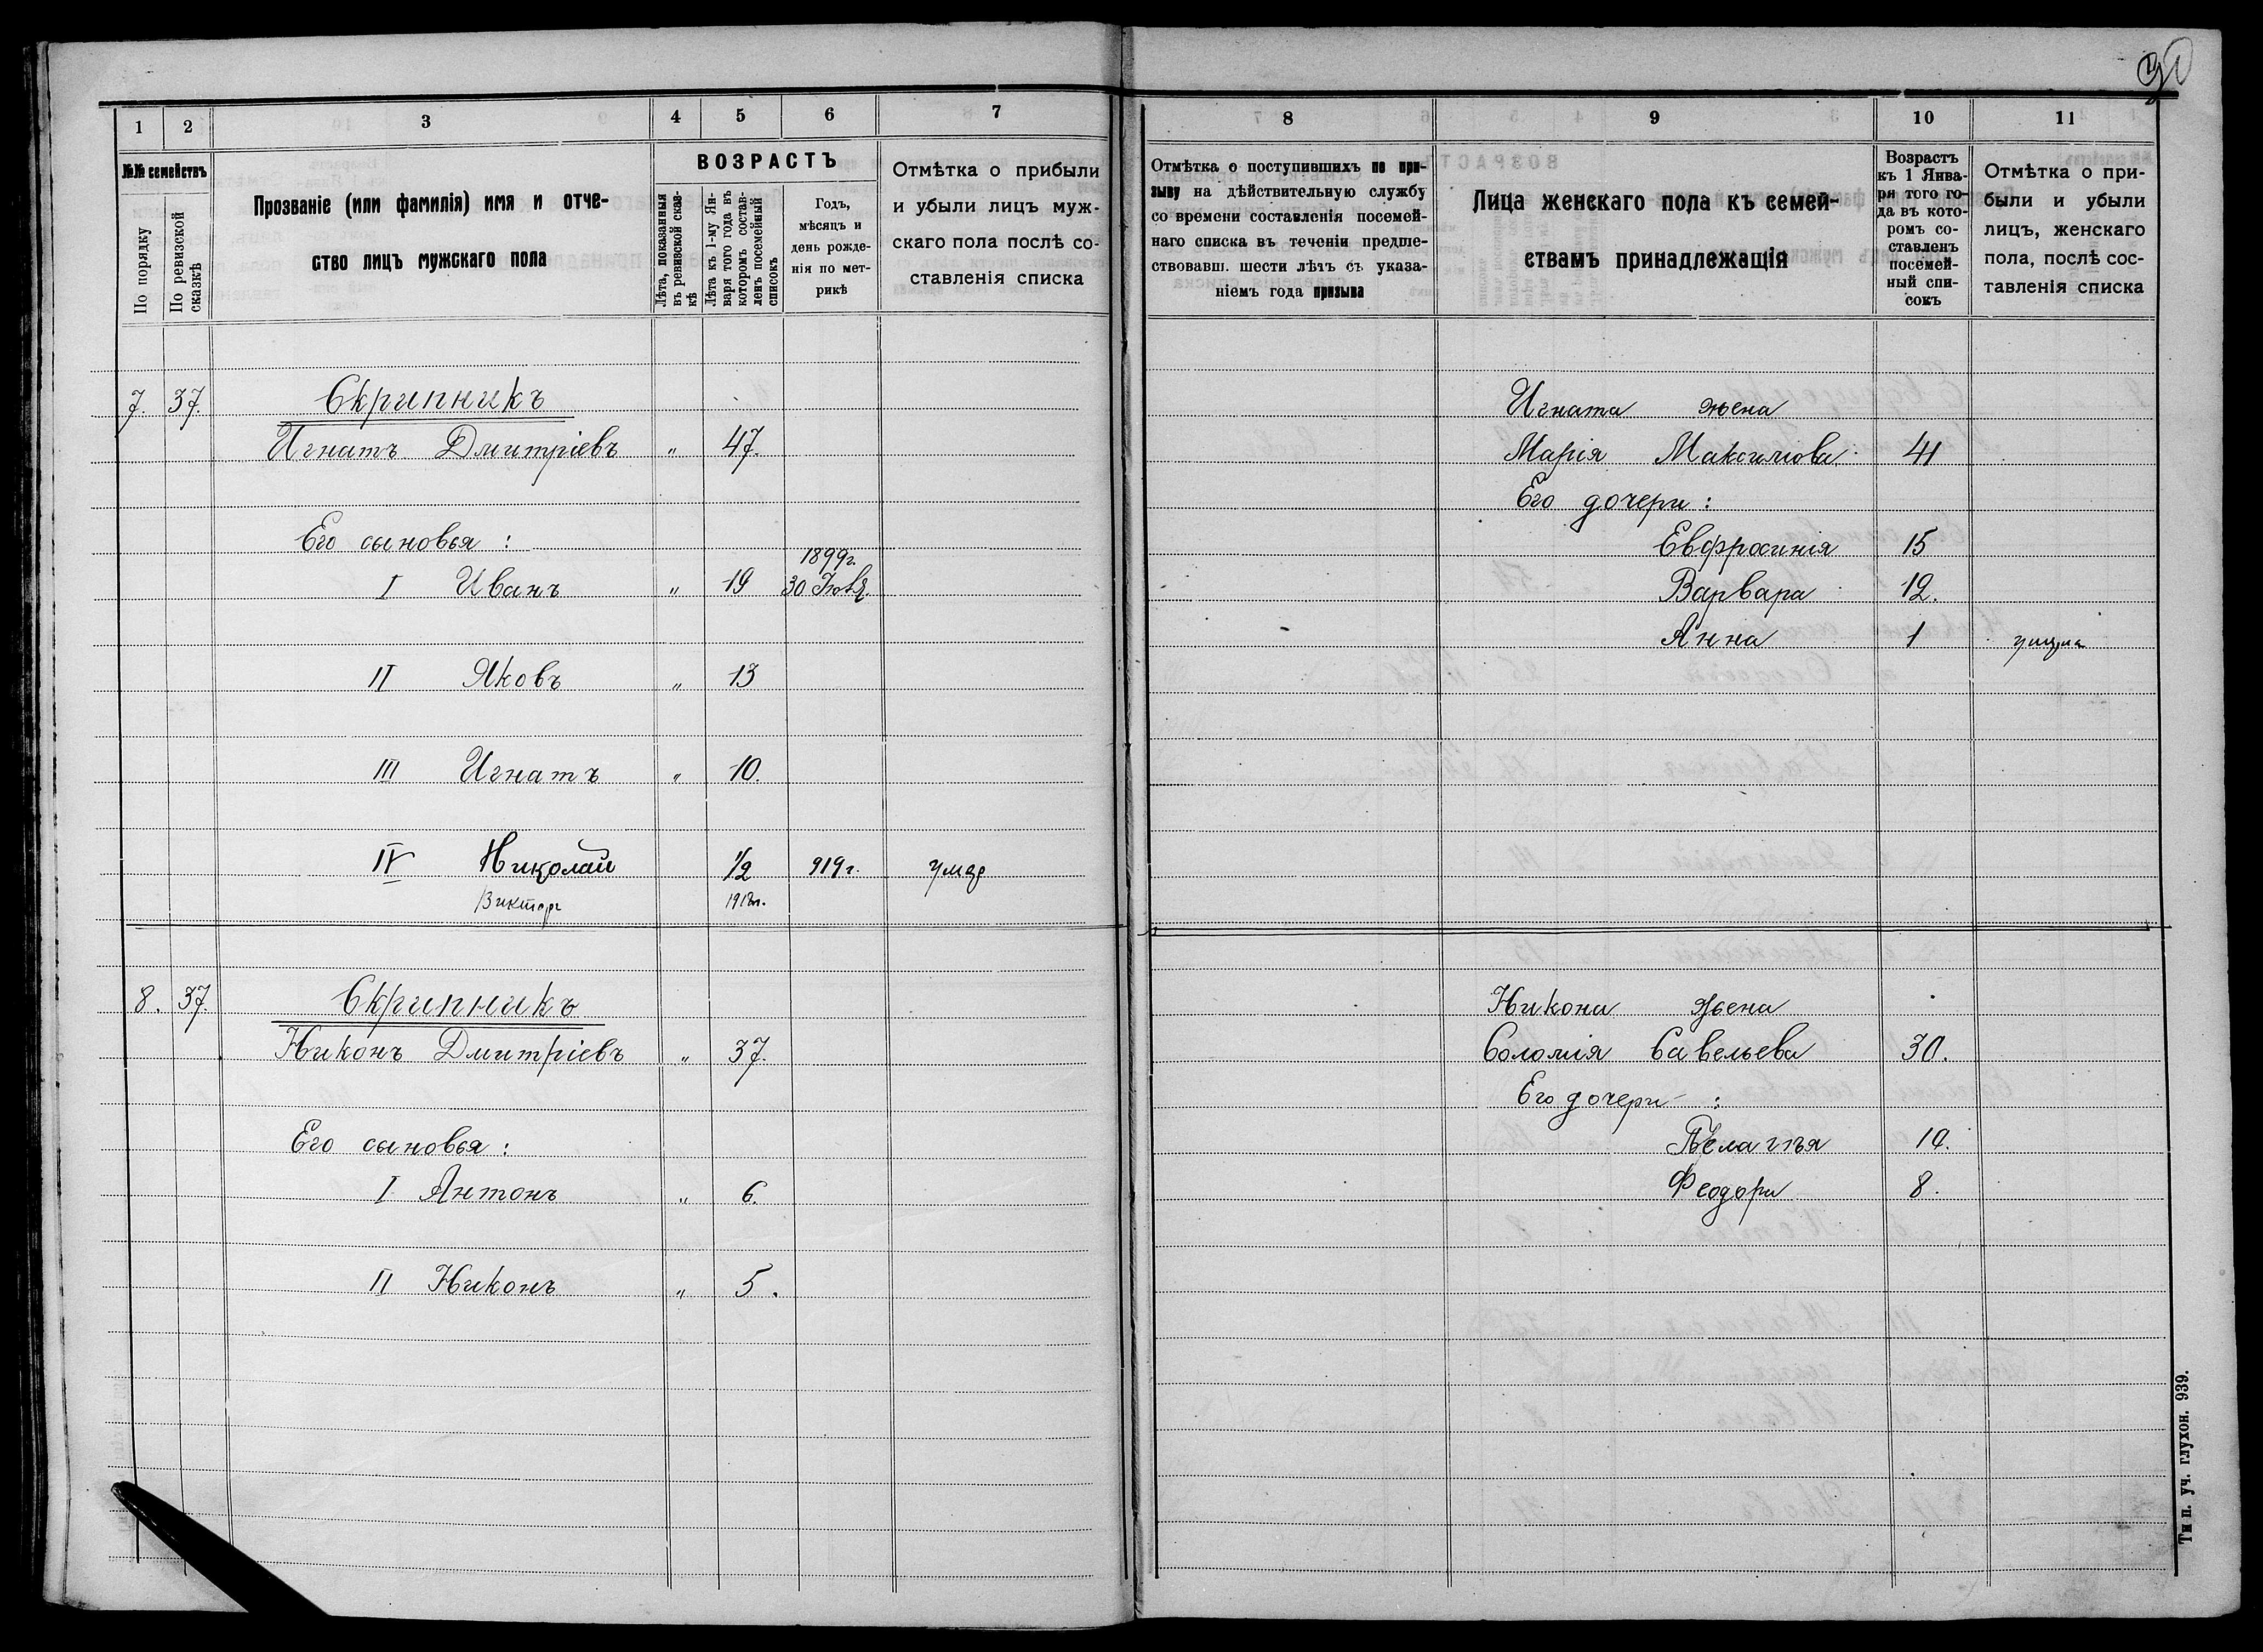 90
1 2 3 4 5 6 7
№№ семействъ
По порядку
По ревизской сказкѣ
Прозваніе (или фамилія) имя и отче-
ство лицъ мужскаго пола
ВОЗРАСТЪ
Лѣта, показанныя
въ ревизской сказ-
кѣ
Лѣта къ 1-му Ян-
варя того года въ
которомъ состав-
ленъ посемейный
списокъ
Годъ,
мѣсяцъ и
день рожде-
нія по мет-
рикѣ
Отмѣтка о прибыли
и убыли лицъ муж-
скаго пола послѣ со-
ставленія списка
7. 37. Скрипникъ
Игнатъ Дмитріевъ " 47.
Его сыновья :
1899г.
I Иванъ " 19 30
II Яковъ " 13
III Игнатъ " 10.
IV Николай 1/2 919г. умер
Виктор
8. 37. Скрипникъ
Никонъ Дмитріевъ " 37.
Его сыновья :
I Антонъ " 6.
II Никонъ " 5.
8 9 10 11
Отмѣтка о поступившихъ по при-
зыву на дѣйствительную службу
со времени составленія посемей-
наго списка въ теченіи предше-
ствовавш. шести лѣтъ съ указа-
ніемъ года призыва
Лица женскаго пола къ семей-
ствамъ принадлежащія
Возрастъ
къ 1 Янва-
ря того го-
да въ кото-
ромъ со-
ставленъ
посемей-
ный спи-
сокъ
Отмѣтка о при-
были и убыли
лицъ, женскаго
пола, послѣ сос-
тавленія списка
Игната жена
Марія Максимова 41
Его дочери :
Евфросинія 15
Варвара 12.
Анна 1
Никона жена
Соломія Савельева 30.
Его дочери :
Пелагѣя 10.
Феодора 8.
Тип. уч. глухон. 939.